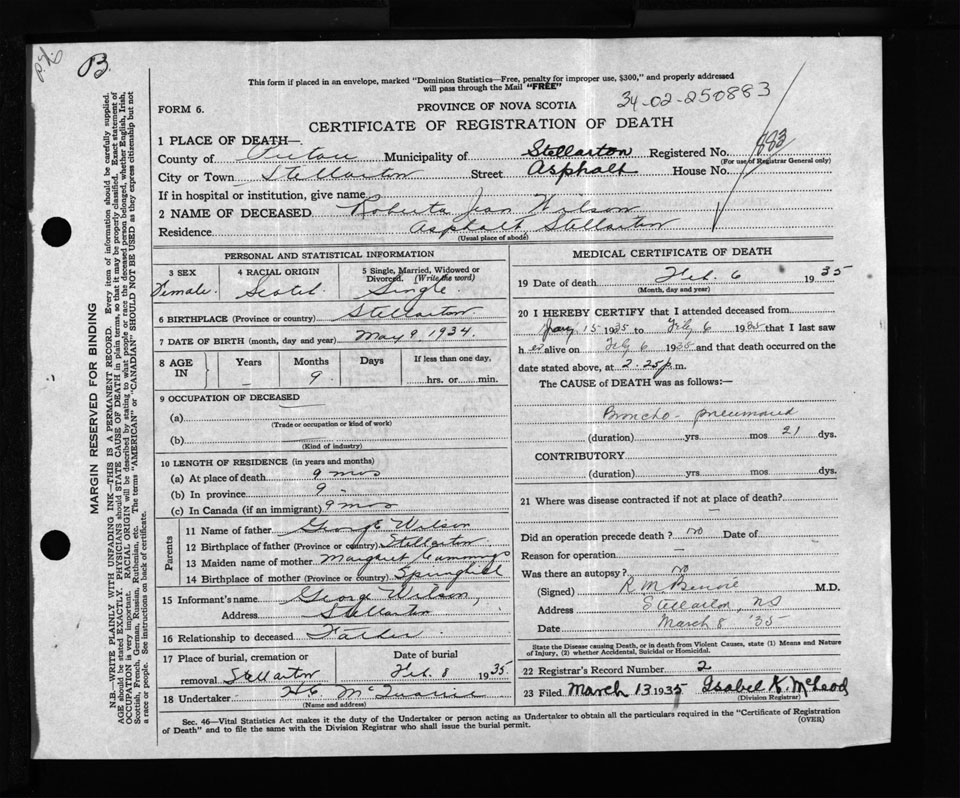 B.
This form if placed in an envelope, marked "Dominion Statistics—Free, penalty for improper use, $300," and properly addressed
will pass through the Mail "FREE"
FORM 6.
PROVINCE OF NOVA SCOTIA
34-02-250883
CERTIFICATE OF REGISTRATION OF DEATH
1 PLACE OF DEATH—
County of Pictou Municipality of Stellarton Registered No. 883
(For use of Registrar General only)
City or Town Stellarton Street Asphalt House No.
If in hospital or institution, give name
2 NAME OF DECEASED Roberta Jean Wilson
Residence Asphalt, Stellarton
(Usual place of abode)
PERSONAL AND STATISTICAL INFORMATION
3 SEX 4 RACIAL ORIGIN 5 Single, Married, Widowed or Divorced. (Write the word)
Female. Scotch Single.
6 BIRTHPLACE (Province or country) Stellarton
7 DATE OF BIRTH (month, day and year) May 9 1934.
8 AGE IN Years Months Days If less than one day,
— 9 hrs. or min.
9 OCCUPATION OF DECEASED
(a)
(Trade or occupation or kind of work)
(b)
(Kind of industry)
10 LENGTH OF RESIDENCE (in years and months)
(a) At place of death 9 mos
(b) In province 9 -
(c) In Canada (if an immigrant) 9 mos
Parents
11 Name of father George Wilson
12 Birthplace of father (Province or country) Stellarton
13 Maiden name of mother Margaret Cummings
14 Birthplace of mother (Province or country) Springhill
15 Informant's name George Wilson,
Address Stellarton
16 Relationship to deceased Father
17 Place of burial, cremation or removal Stellarton Date of burial Feb. 8 1935
18 Undertaker
(Name and address)
MEDICAL CERTIFICATE OF DEATH
19 Date of death Feb. 6 1935
(Month, day and year)
20 I HEREBY CERTIFY that I attended deceased from
Jany 15 1935 to Feby 6 1935 that I last saw
h er alive on Feby 6 1935 and that death occurred on the
date stated above, at 2.25 p.m.
The CAUSE of DEATH was as follows:—
Broncho-pneumonia
(duration) yrs. mos 21 dys.
CONTRIBUTORY
(duration) yrs. mos. dys.
21 Where was disease contracted if not at place of death?
Did an operation precede death? no Date of
Reason for operation —
Was there an autopsy? no
(Signed) R. M. M.D.
Address Stellarton, NS
Date March 8 '35
State the Disease causing Death, or in Death from Violent Causes, state (1) Means and Nature
of Injury, (2) whether Accidental, Suicidal or Homicidal.
22 Registrar's Record Number 2
23 Filed March 13 1935 Isabel K. McLeod
(Division Registrar)
Sec. 46—Vital Statistics Act makes it the duty of the Undertaker or person acting as Undertaker to obtain all the particulars required in the "Certificate of Registration
of Death" and to file the same with the Division Registrar who shall issue the burial permit.
(OVER)
MARGIN RESERVED FOR BINDING
N.B.—WRITE PLAINLY WITH UNFADING INK—THIS IS A PERMANENT RECORD. Every item of information should be carefully supplied.
AGE should be stated EXACTLY. PHYSICIANS should STATE CAUSE OF DEATH in plain terms, so that it may be properly classified. Exact statement of
OCCUPATION is very important. RACIAL ORIGIN will be described by stating to what people or race the deceased person belonged, whether English, Irish,
Scottish or French, German, Russian, Ruthenian, etc. The terms "AMERICAN" or "CANADIAN" SHOULD NOT BE USED as they express citizenship but not
a race or people. See instructions on back of certificate.